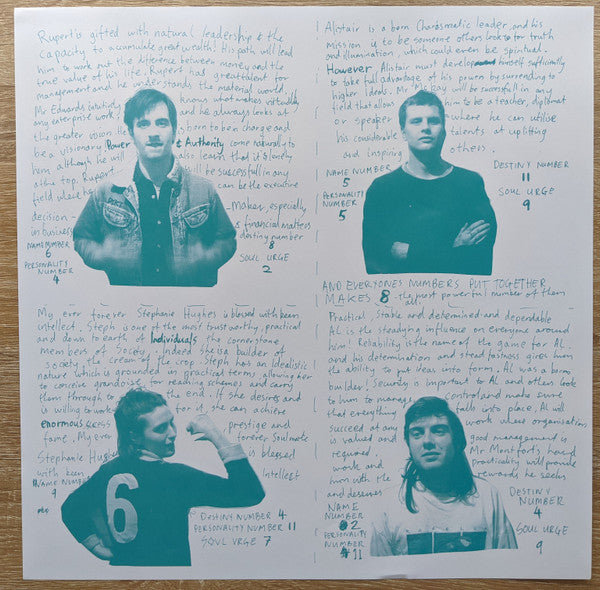 Rupert is gifted with natural leadership & the
capacity to accumulate great wealth! His path will lead
him to work out the diference between money and the
true value of his life. Rupert has great talent for
management and he understands the material world.
Mr Edwards intuitively knows what makes virtually
any enterprise work, and he always looks at
the greater vision. He is born to be in charge and
be a visionary. Power & Authority come naturally to
him although he will also learn that it's lonely
at the top. Rupert will be successful in any
field where he can be the executive
decision - Maker, especially
in business & financial matters
NAME NUMBER
6
PERSONALITY
NUMBER
4
destiny number
8
SOUL URGE
2
Alistair is a born Charasmatic leader, and his
mission is to be someone others look to for truth
and illumination, which could even be spiritual.
However Alistair must develop himself sufficiently
to take full advantage of his power by surrendering to
higher ideals. Mr McKay will be successful in any
field that allows him to be a teacher, diplomat
or speaker where he can utilise
his considerable talents at uplifting
and inspiring others.
NAME NUMBER
5
PERSONALITY
NUMBER
5
DESTINY NUMBER
11
SOUL URGE
9
My ever forever Stephanie Hughes is blessed with keen
intellect. Steph is one of the most trust worthy, practical
and down to earth of Individuals, the cornerstone
members of Society. Indeed she is a builder of
society, the cream of the crop. Steph has an idealistic
nature which is grounded in practical terms allowing her
to conceive grandoise far reaching schemes and carry
them through to the end. If she desires and
is willing to work for it she can achieve
enormous success prestige and
fame. My ever forever Soulmate
Stephanie Hughes is blessed
with keen Intellect
NAME NUMBER
9
DESTINY NUMBER 4
PERSONALITY NUMBER 11
SOUL URGE 7
6
AND EVERYONES NUMBERS PUT TOGETHER
MAKES 8 the most powerful number of them
all.
Practical, Stable and determined and dependable
AL is the steadying influence on everyone around
him! Reliability is the name of the game for AL.
and his determination and steadfastness gives him
the ability to put ideas into form. AL was a born
builder! Security is important to AL and others look
to him to manage control and make sure
that everything falls into place. AL will
succeed at any work where organisation
is valued and good management is
required. Mr Montfort's hard
work and practicality will provide
him with the rewards he seeks
and deserves
NAME
NUMBER
2
PERSONALITY
NUMBER
11
DESTINY
NUMBER
4
SOUL URGE
9